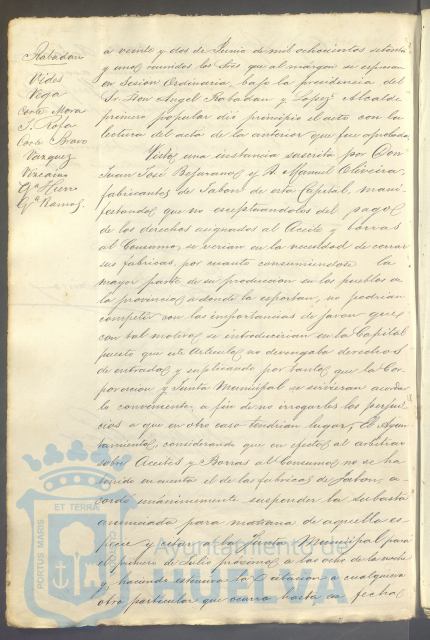 Rabadan
Vides
Vega
Corte Mora
Corte Bravo
Vazquez
Vizcaino
Gª Hierro
Gª Ramos
a veinte y dos de Junio de mil ochocientos setenta
y uno, reunidos los Sres que al margen se espresan
en Sesión Ordinaria, bajo la presidencia del
Sr. Don Angel Rabadan y Lopez, Alcalde
primero popular dio principio el acto con la
lectura del acta de la anterior que fue aprobada
Vista una instancia suscrita por Don
Juan José Bejarano y D. Manuel Oliveira,
fabricantes de Jabon de esta Capital, mani
festando que no exeptuandolos del pago
de los derechos asignados al Aceite y borras
al Consumo, se verian en la necesidad de cerrar
sus fabricas, por cuanto consumiendose la
mayor parte de su produccion en los pueblos de
la provincia a donde la esportan, no podrian
competir con las importancias de javon que
con tal motivo se introducirian en la Capital
puesto que este Articulo no devengaba derechos
de entrada y suplicando por tanto que la Cor
poracion y Junta Municipal se sirvieran acordar
lo conveniente, a fin de no irrogarles los perjui
cios a que en otro caso tendrian lugar, El Ayun
tamiento, considerando que en efecto al arbitrar
sobre Aceites y Borras al Consumo no se ha
tenido en cuenta el de las fabricas de Jabon, a
cordó unánimemente suspender la subasta
anunciada para mañana de aquella es
pecie y citar a la Junta Municipal para
el primero de Julio próximo a las ocho de la noche
y haciendo estensiva la citacion a cualquiera
otro particular que ocurra hasta su fecha
PORTUS MARIS ET TERRAE
Ayuntamiento de
HUELVA